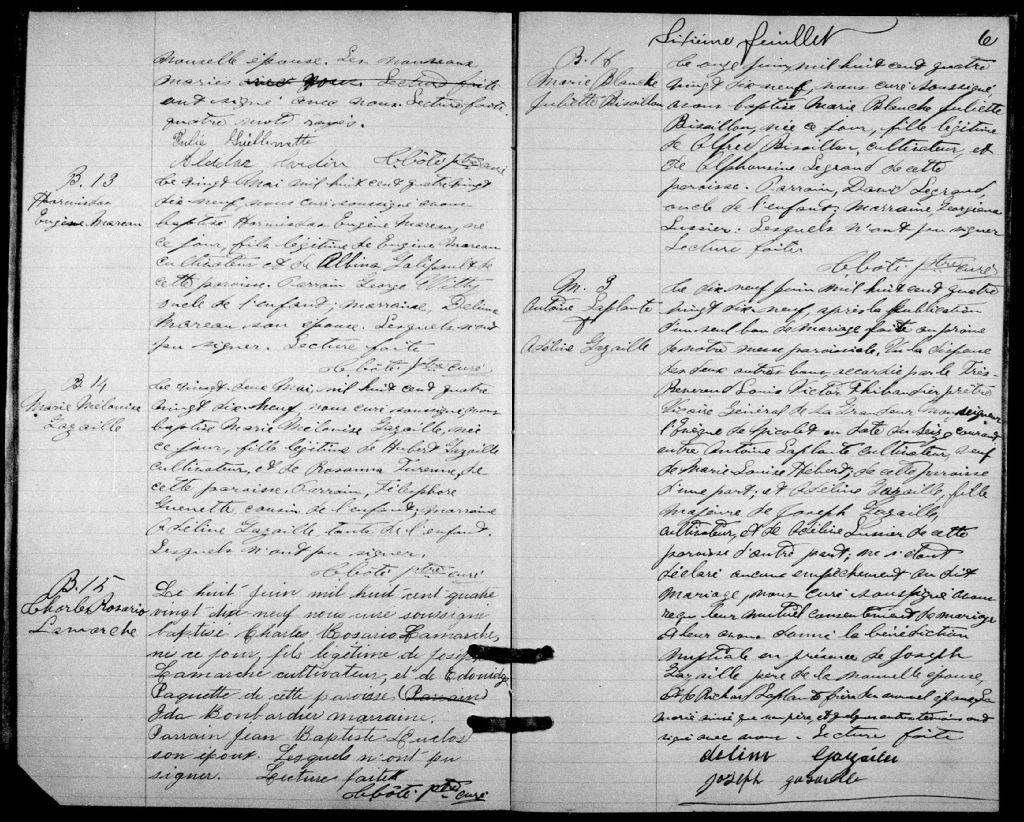 nouvelle épouse. Les nouveaux
mariés Lecture faite
ont signé avec nous. Lecture faite
quatre mots rayés.
Julie Guillemette
Aldelac H Côté ptre curé
B. 13
Hormisdas
Eugène Mareau
Le vingt Mai mil huit cent quatre vingt
dix neuf, nous curé soussigné avons
baptisé Hormisdas Eugène Mareau, né
ce jour, fils légitime de Eugène Mareau
cultivateur et de Albina Galipault de
cette paroisse. Parrain George
oncle de l'enfant; marraine, Delima
Mareau son épouse. Lesquels n'ont
pu signer. Lecture faite
H Côté ptre curé
B. 14
Marie Mélonise
Gazaille
Le vingt deux Mai, mil huit cent quatre
vingt dix-neuf, nous curé soussigné avons
baptisé Marie Mélonise Gazaille, née
ce jour, fille légitime de Hubert Gazaille
cultivateur, et de Rosanna Turenne, de
cette paroisse. Parrain, Télesphore
Guenette cousin de l'enfant; marraine
Adéline Gazaille tante de l'enfant.
Lesquels n'ont pu signer.
H Côté ptre curé
B. 15
Charles Rosario
Lamarche
Le huit juin mil huit cent quatre
vingt dix neuf nous curé soussigné
baptisé Charles Rosario Lamarche,
né ce jour, fils légitime de Joseph
Lamarche cultivateur, et de Edonidge
Paquette de cette paroisse (Parrain)
Ida Bombardier marraine.
Parrain Jean Baptiste Duclos
son époux. Lesquels n'ont pu
signer. Lecture faite
H Côté ptre curé
Sixième feuillet 6
B. 16
Marie Blanche
Juliette Bisaillon
Le onze juin, mil huit cent quatre
vingt dix neuf, nous curé soussigné,
avons baptisé Marie Blanche Juliette
Bisaillon, née ce jour, fille légitime
de Alfred Bisaillon, cultivateur, et
de Alphonsine Legrand de cette
paroisse. Parrain, David Legrand,
oncle de l'enfant; marraine, Georgiana
Lussier. Lesquels n'ont pu signer
Lecture faite
H Côté ptre curé
M. 3
Antoine Laplante
&
Adéline Gazaille
Le dix neuf juin mil huit cent quatre
vingt dix-neuf, après la publication
d'un seul ban de mariage faite au prône
de notre messe paroissiale, Vu la dispense
des deux autres bans accordée par le Très
Révérend Louis Victor Thibaudier prêtre
Vicaire Général de Sa Grandeur Monseigneur
l'Évêque de Nicolet en date du seize courant
entre Antoine Laplante cultivateur, veuf
de Marie-Louise Hébert, de cette paroisse
d'une part; et Adéline Gazaille, fille
majeure de Joseph Gazaille,
cultivateur, et de Adéline Lussier de cette
paroisse d'autre part; ne s'étant
déclaré aucun empêchement au dit
mariage, nous curé soussigné avons
reçu leur mutuel consentement de mariage
et leur avons donné la bénédiction
nuptiale en présence de Joseph
Gazaille père de la nouvelle épouse,
et de Richard Laplante frère du nouvel époux. La
mariée ainsi que son père, et quelques autres témoins ont
signé avec nous. Lecture faite
delina Gazailles
joseph gazaille